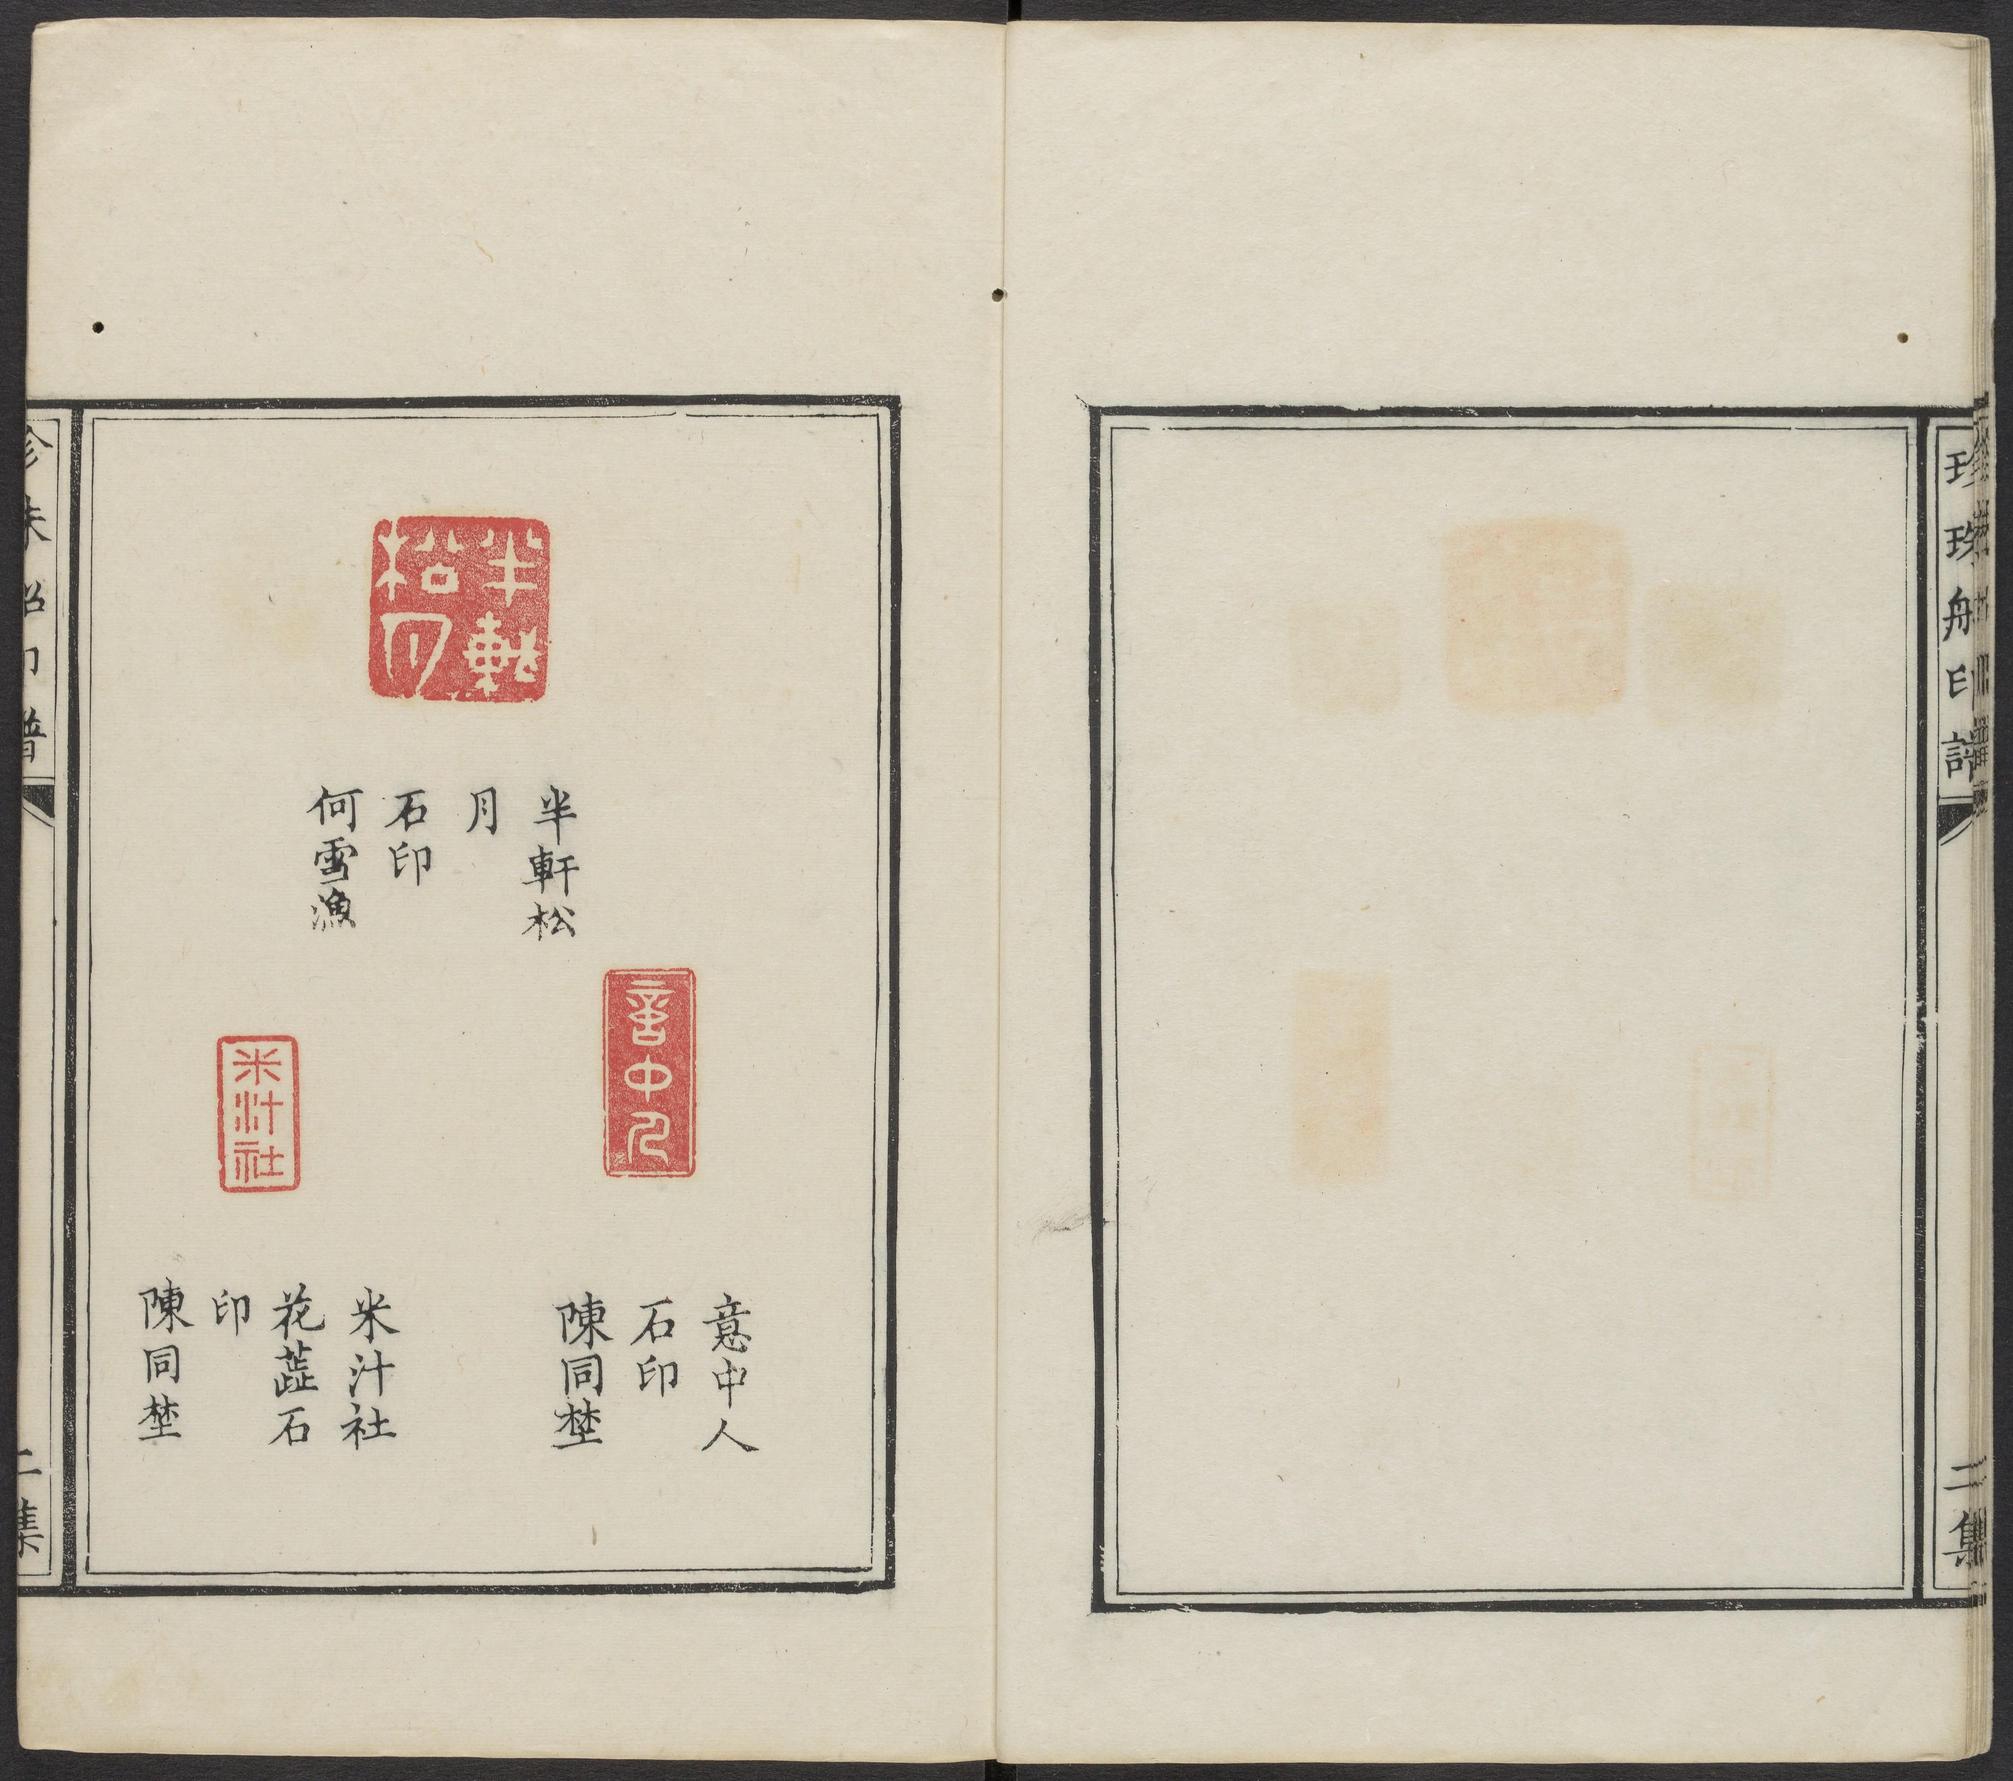 珍珠船印譜
二集
半軒松月
半軒松
月
石印
何雪漁
意中人
意中人
石印
陳同埜
米汁社
米汁社
花蕋石
印
陳同埜
珍珠船印譜
二集